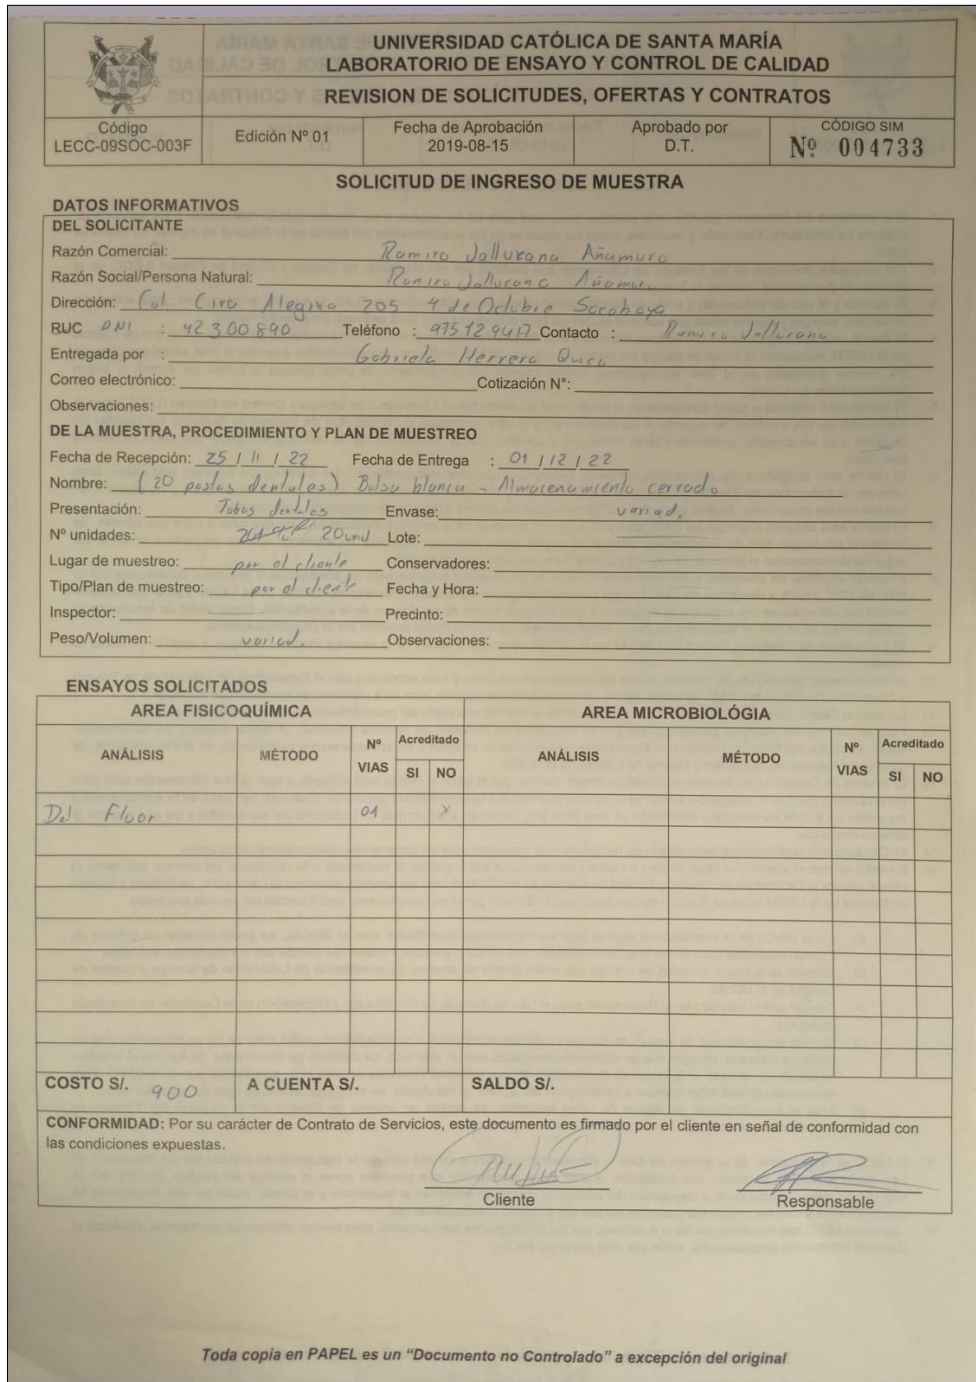 UNIVERSIDAD CATÓLICA DE SANTA MARÍA
LABORATORIO DE ENSAYO Y CONTROL DE CALIDAD
REVISION DE SOLICITUDES, OFERTAS Y CONTRATOS
Código
LECC-09SOC-003F
Edición Nº 01
Fecha de Aprobación
2019-08-15
Aprobado por
D.T.
CÓDIGO SIM
Nº 004733
SOLICITUD DE INGRESO DE MUESTRA
DATOS INFORMATIVOS
DEL SOLICITANTE
Razón Comercial: Ramiro Jallurana Añamuro
Razón Social/Persona Natural: Ramiro Jallurana Añamuro
Dirección: Cal Ciro Alegria 205 4 de Octubre Socabaya
RUC DNI : 42300890 Teléfono : 975129417 Contacto : Ramiro Jallurana
Entregada por : Gabriela Herrera Quico
Correo electrónico: Cotización N°:
Observaciones:
DE LA MUESTRA, PROCEDIMIENTO Y PLAN DE MUESTREO
Fecha de Recepción: 25 / 11 / 22 Fecha de Entrega : 01 / 12 / 22
Nombre: (20 pastas dentales) Bolsa blanca - Almacenamiento cerrado
Presentación: Tubos dentales Envase: variad.
Nº unidades: 20und Lote:
Lugar de muestreo: por el cliente Conservadores:
Tipo/Plan de muestreo: por el cliente Fecha y Hora:
Inspector: Precinto:
Peso/Volumen: variad. Observaciones:
ENSAYOS SOLICITADOS
AREA FISICOQUÍMICA AREA MICROBIOLÓGIA
ANÁLISIS MÉTODO Nº VIAS Acreditado SI NO ANÁLISIS MÉTODO Nº VIAS Acreditado SI NO
Det Fluor 01 X
COSTO S/. 900 A CUENTA S/. SALDO S/.
CONFORMIDAD: Por su carácter de Contrato de Servicios, este documento es firmado por el cliente en señal de conformidad con
las condiciones expuestas.
Cliente Responsable
Toda copia en PAPEL es un "Documento no Controlado" a excepción del original